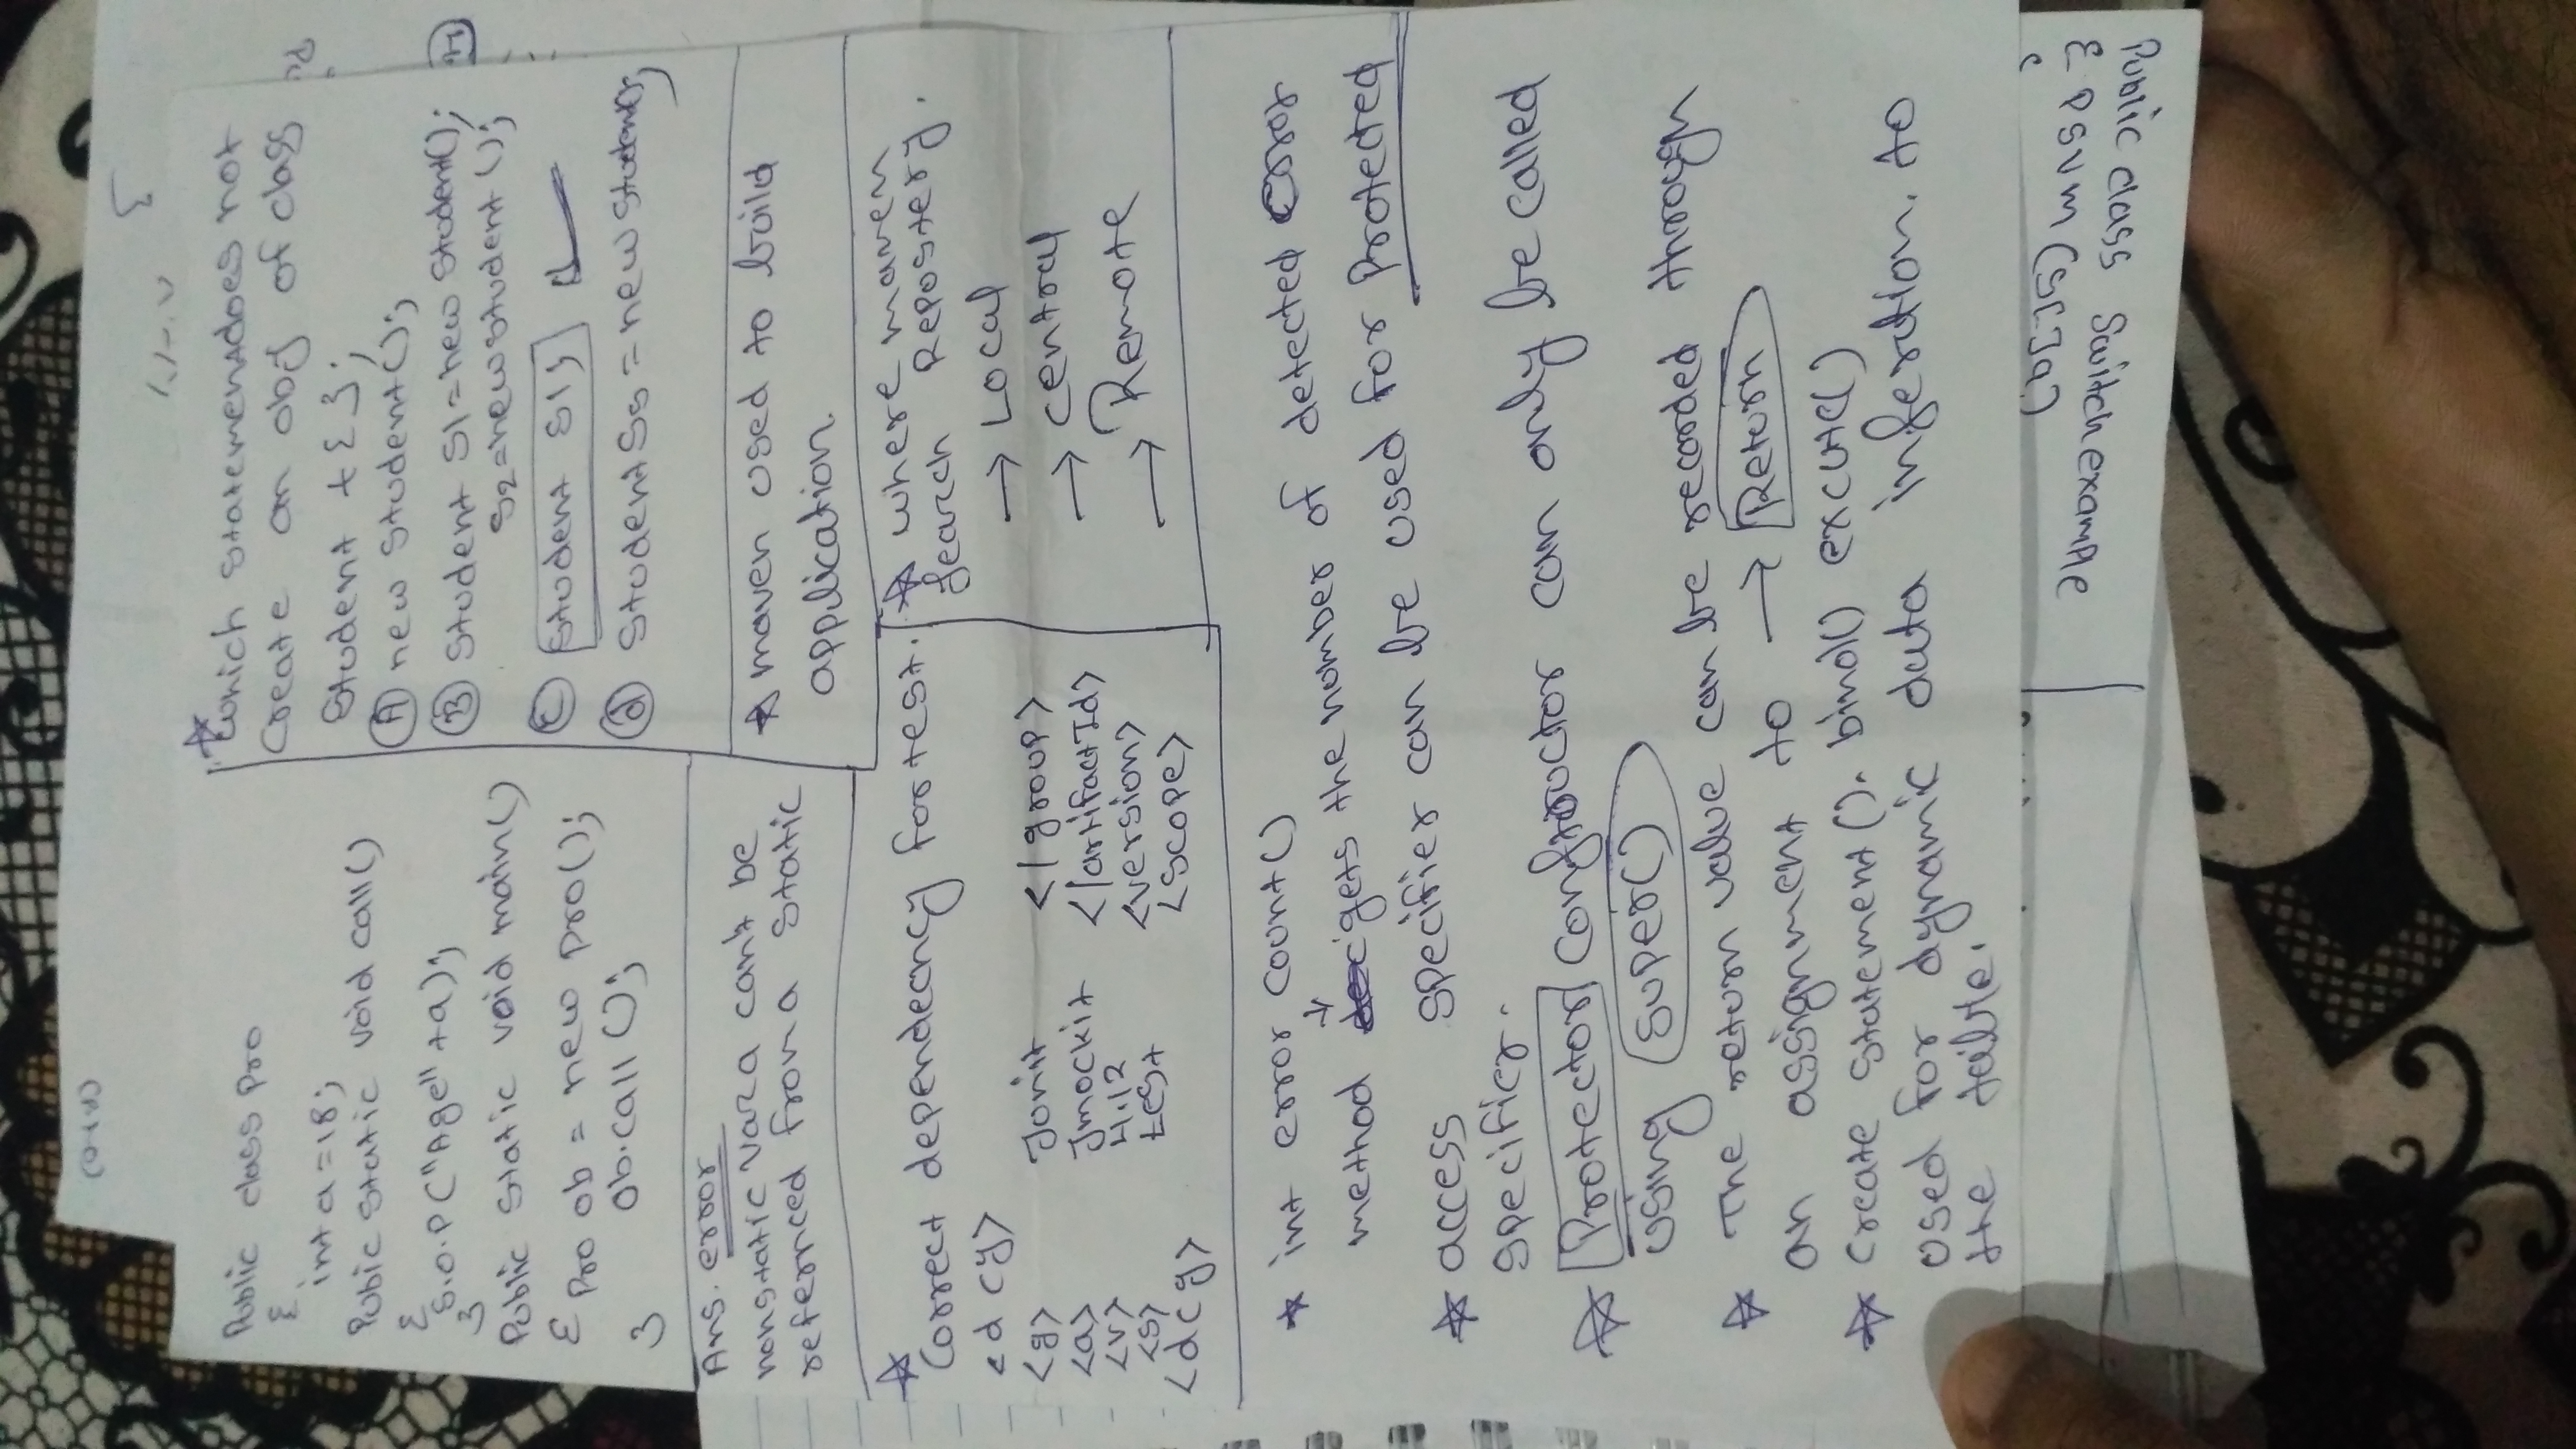 Public class Pro
{
int a = 18;
Pubic static void call()
{
S.O.P("Age" +a);
}
Public static void main()
{ Pro ob = new pro();
ob.call();
}
Ans. error
nonstatic var a can't be
refernced from a static
☆ which statement does not
create an obj of class
Student t { };
(A) new Student();
(B) Student S1 = new Student();
S2 = new student ();
(C) Student S1;
(d) Student S5 = new Student();
☆ maven used to build
application.
☆
Correct dependecncy for test.
<dcy>
<g> Junit </group>
<a> Jmockit </artifactId>
<v> 4.12 <version>
<s> test <scope>
<dcy>
☆ where maven
search Repostery.
→ Local
→ central
→ Remote
☆ int error count()
method gets the number of detected error
☆ access specifier can be used for Protected
specifier.
☆ Protector constructor can only be called
using super()
☆ The return value can be recorded through
an assignment to → Return
☆ Create statement(). bind() excute()
used for dynamic data insertion. to
the table.
Public class Switch example
{ PSVM (S[]a)
{